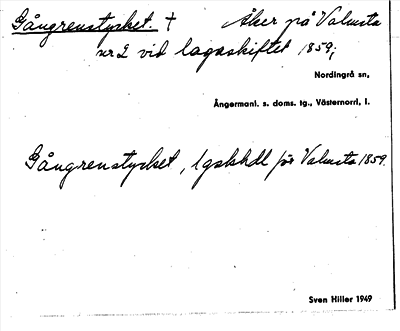 Gångrenstycket. † Åker på Valusta
nr 2 vid lagaskiftet 1859;
Nordingrå sn,
Ångermanl. s. doms. tg., Västernorrl, l.
Gångrenstycket, lgskhdl för Valusta 1859.
Sven Hiller 1949